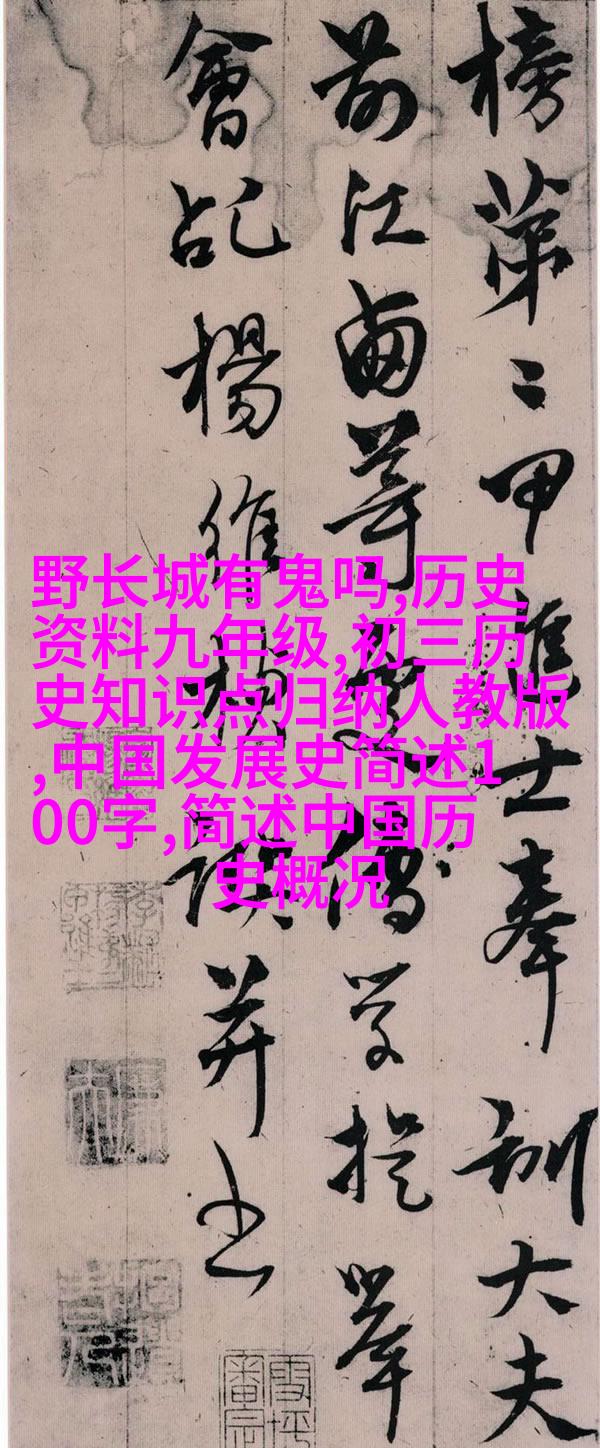 榜第二甲進士奉訓大夫
前江西等處儒學提舉
會稽楊維楨譔并書
野长城有鬼吗,历史
资料九年级,初三历
史知识点归纳人教版
,中国发展史简述1
00字,简述中国历
史概况